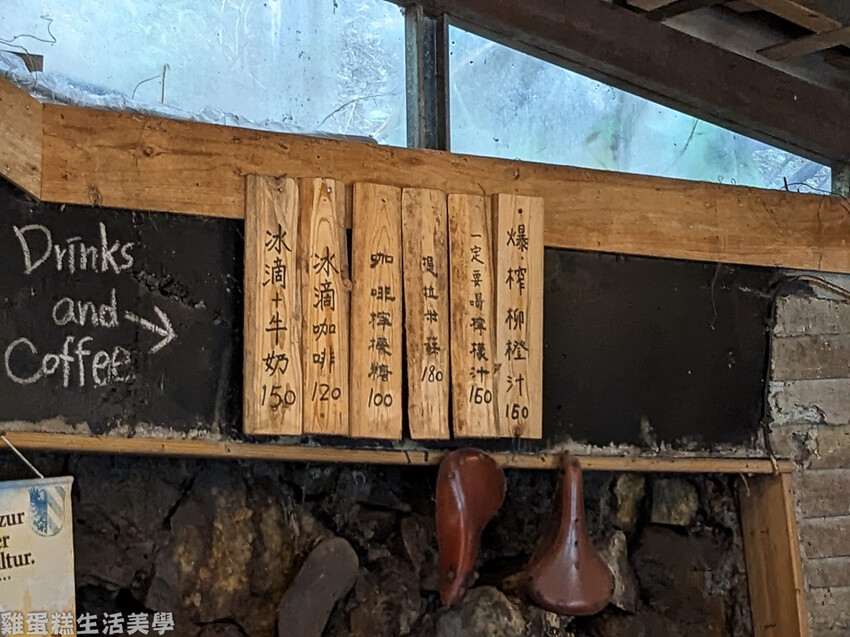 Drinks
and
Coffee
冰滴+牛奶150
冰滴咖啡120
咖啡檸檬糖100
提拉米蘇180
一定要喝檸檬汁150
爆榨柳橙汁150
zur
er
ltur.
雞蛋糕生活美學